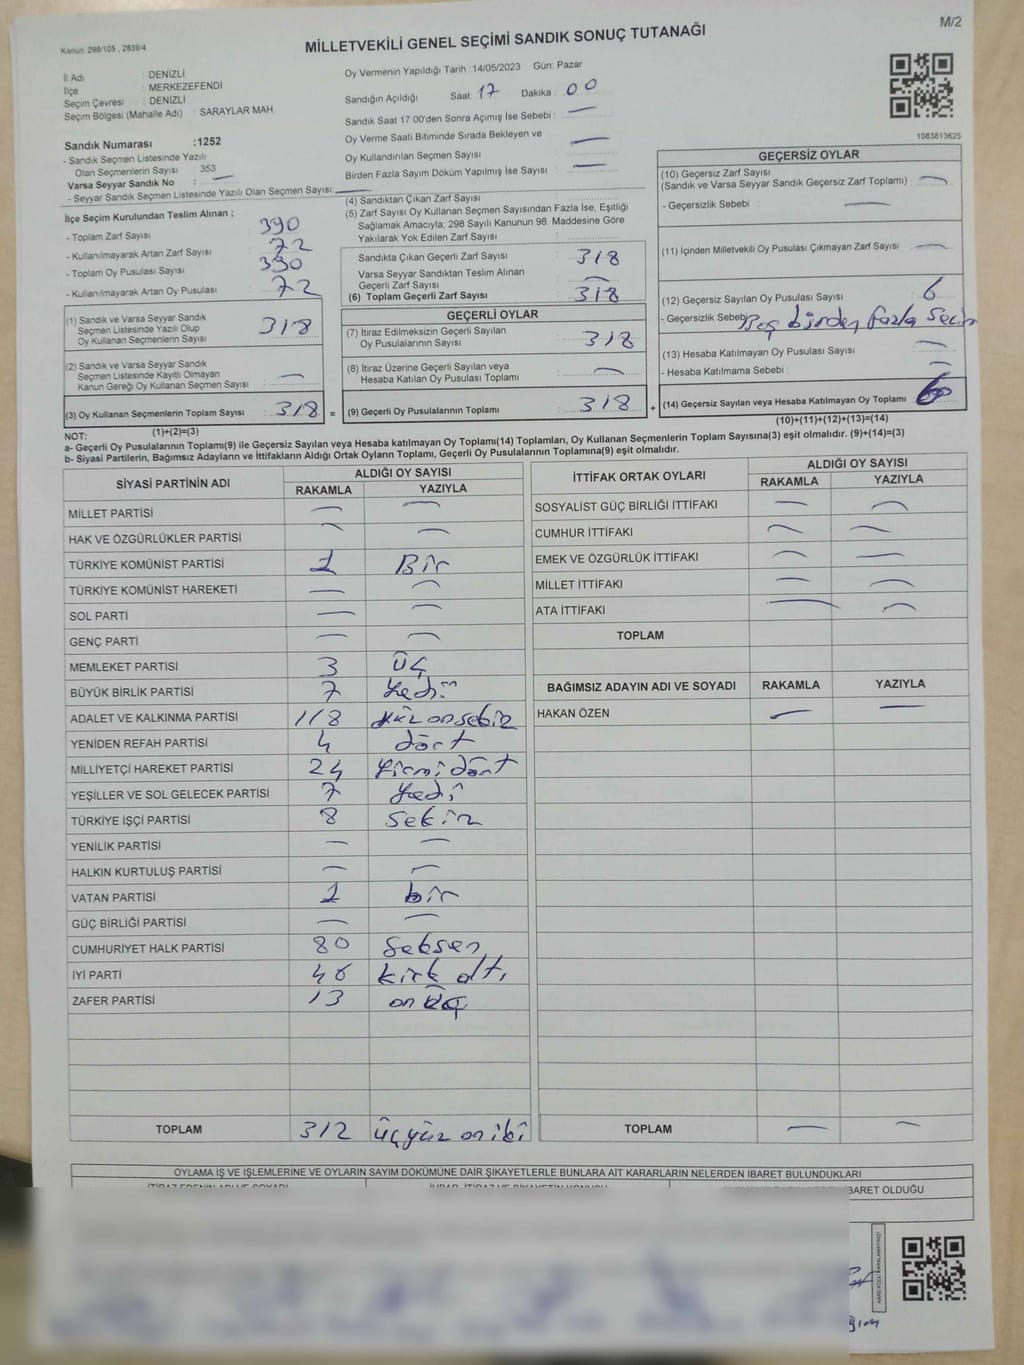 M/2
Kanun: 298/105 , 2839/4
MİLLETVEKİLİ GENEL SEÇİMİ SANDIK SONUÇ TUTANAĞI
İl Adı : DENİZLİ
İlçe : MERKEZEFENDİ
Seçim Çevresi : DENİZLİ
Seçim Bölgesi (Mahalle Adı) : SARAYLAR MAH.
Sandık Numarası :1252
- Sandık Seçmen Listesinde Yazılı
Olan Seçmenlerin Sayısı 353
Varsa Seyyar Sandık No : —
- Seyyar Sandık Seçmen Listesinde Yazılı Olan Seçmen Sayısı —
Oy Vermenin Yapıldığı Tarih :14/05/2023 Gün: Pazar
Sandığın Açıldığı Saat 17 Dakika : 00
Sandık Saat 17 00'den Sonra Açımış İse Sebebi : —
Oy Verme Saati Bitiminde Sırada Bekleyen ve
Oy Kullandırılan Seçmen Sayısı —
Birden Fazla Sayım Döküm Yapılmış İse Sayısı —
1083813625
İlçe Seçim Kurulundan Teslim Alınan ;
- Toplam Zarf Sayısı 390
- Kullanılmayarak Artan Zarf Sayısı 72
- Toplam Oy Pusulası Sayısı 390
- Kullanılmayarak Artan Oy Pusulası 72
(1) Sandık ve Varsa Seyyar Sandık
Seçmen Listesinde Yazılı Olup
Oy Kullanan Seçmenlerin Sayısı 318
(2) Sandık ve Varsa Seyyar Sandık
Seçmen Listesinde Kayıtlı Olmayan
Kanun Gereği Oy Kullanan Seçmen Sayısı —
(3) Oy Kullanan Seçmenlerin Toplam Sayısı 318 =
(1)+(2)=(3)
(4) Sandıktan Çıkan Zarf Sayısı
(5) Zarf Sayısı Oy Kullanan Seçmen Sayısından Fazla İse, Eşitliği
Sağlamak Amacıyla; 298 Sayılı Kanunun 98. Maddesine Göre
Yakılarak Yok Edilen Zarf Sayısı
Sandıkta Çıkan Geçerli Zarf Sayısı 318
Varsa Seyyar Sandıktan Teslim Alınan
Geçerli Zarf Sayısı —
(6) Toplam Geçerli Zarf Sayısı 318
GEÇERLİ OYLAR
(7) İtiraz Edilmeksizin Geçerli Sayılan
Oy Pusulalarının Sayısı 318
(8) İtiraz Üzerine Geçerli Sayılan veya
Hesaba Katılan Oy Pusulası Toplamı —
(9) Geçerli Oy Pusulalarının Toplamı 318 +
GEÇERSİZ OYLAR
(10) Geçersiz Zarf Sayısı
(Sandık ve Varsa Seyyar Sandık Geçersiz Zarf Toplamı) —
- Geçersizlik Sebebi —
(11) İçinden Milletvekili Oy Pusulası Çıkmayan Zarf Sayısı —
(12) Geçersiz Sayılan Oy Pusulası Sayısı 6
- Geçersizlik Sebebi Boş birden fazla seçim
(13) Hesaba Katılmayan Oy Pusulası Sayısı —
- Hesaba Katılmama Sebebi : —
(14) Geçersiz Sayılan veya Hesaba Katılmayan Oy Toplamı 6
(10)+(11)+(12)+(13)=(14)
NOT:
a- Geçerli Oy Pusulalarının Toplamı(9) ile Geçersiz Sayılan veya Hesaba katılmayan Oy Toplamı(14) Toplamları, Oy Kullanan Seçmenlerin Toplam Sayısına(3) eşit olmalıdır. (9)+(14)=(3)
b- Siyasi Partilerin, Bağımsız Adayların ve İttifakların Aldığı Ortak Oyların Toplamı, Geçerli Oy Pusulalarının Toplamına(9) eşit olmalıdır.
SİYASİ PARTİNİN ADI ALDIĞI OY SAYISI
RAKAMLA YAZIYLA
MİLLET PARTİSİ — —
HAK VE ÖZGÜRLÜKLER PARTİSİ — —
TÜRKİYE KOMÜNİST PARTİSİ 1 Bir
TÜRKİYE KOMÜNİST HAREKETİ — —
SOL PARTİ — —
GENÇ PARTİ — —
MEMLEKET PARTİSİ 3 üç
BÜYÜK BİRLİK PARTİSİ 7 yedi
ADALET VE KALKINMA PARTİSİ 118 yüz onsekiz
YENİDEN REFAH PARTİSİ 4 dört
MİLLİYETÇİ HAREKET PARTİSİ 24 yirmi dört
YEŞİLLER VE SOL GELECEK PARTİSİ 7 yedi
TÜRKİYE İŞÇİ PARTİSİ 8 sekiz
YENİLİK PARTİSİ — —
HALKIN KURTULUŞ PARTİSİ — —
VATAN PARTİSİ 1 bir
GÜÇ BİRLİĞİ PARTİSİ — —
CUMHURİYET HALK PARTİSİ 80 seksen
İYİ PARTİ 46 kırk altı
ZAFER PARTİSİ 13 on üç
TOPLAM 312 üçyüz on iki
İTTİFAK ORTAK OYLARI ALDIĞI OY SAYISI
RAKAMLA YAZIYLA
SOSYALİST GÜÇ BİRLİĞİ İTTİFAKI — —
CUMHUR İTTİFAKI — —
EMEK VE ÖZGÜRLÜK İTTİFAKI — —
MİLLET İTTİFAKI — —
ATA İTTİFAKI — —
TOPLAM
BAĞIMSIZ ADAYIN ADI VE SOYADI RAKAMLA YAZIYLA
HAKAN ÖZEN — —
TOPLAM — —
OYLAMA İŞ VE İŞLEMLERİNE VE OYLARIN SAYIM DÖKÜMÜNE DAİR ŞİKAYETLERLE BUNLARA AİT KARARLARIN NELERDEN İBARET BULUNDUKLARI
İBARET OLDUĞU